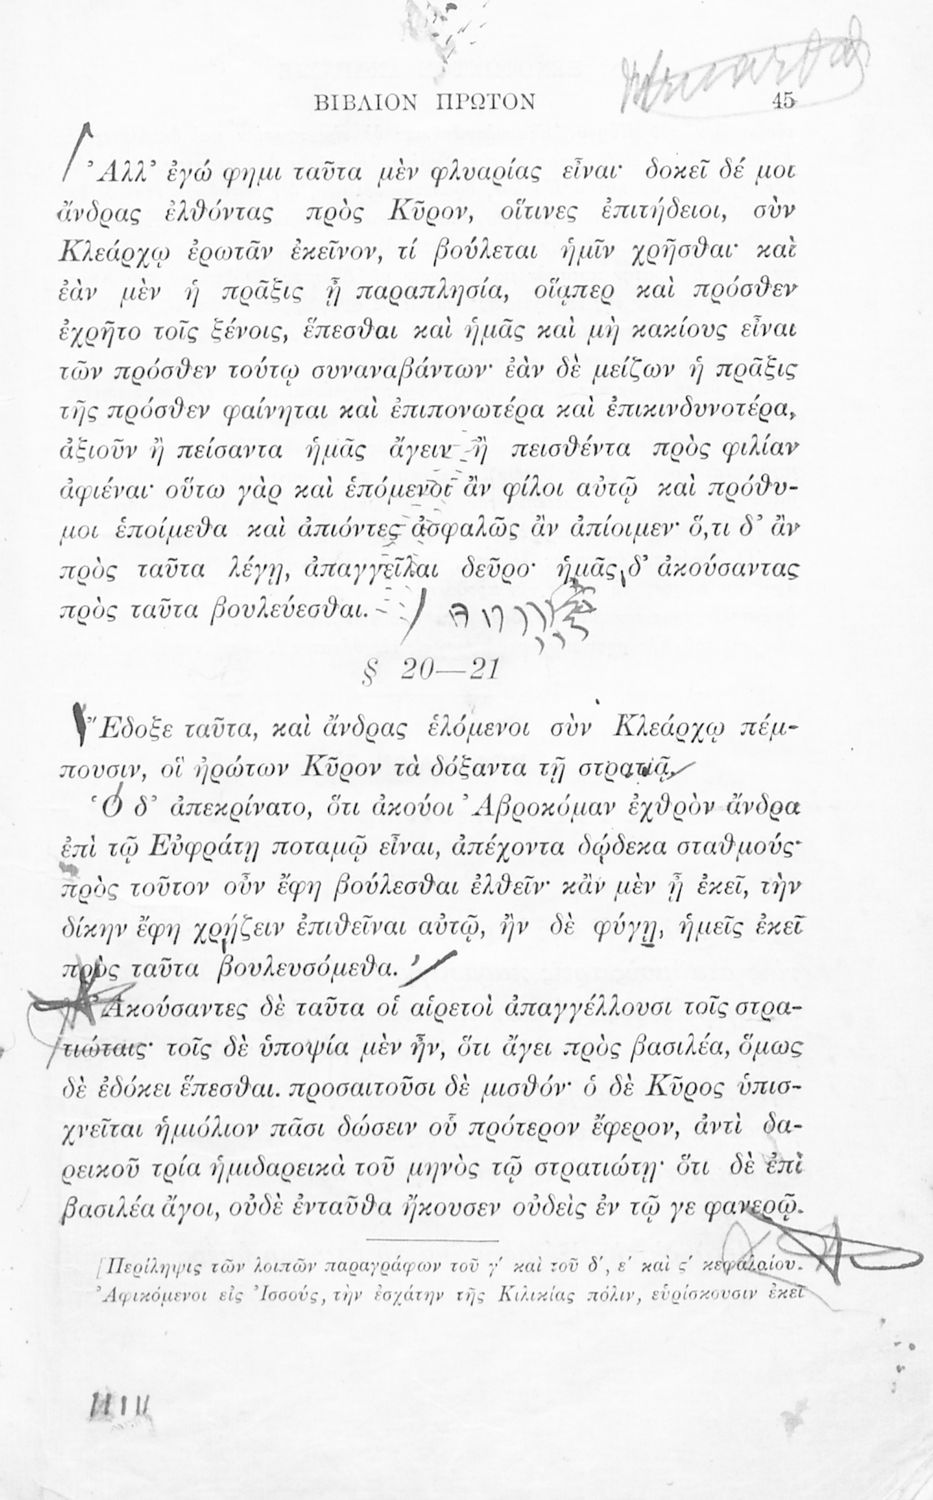 ΒΙΒΛΙΟΝ ΠΡΩΤΟΝ 45
Ἀλλ’ ἐγώ φημι ταῦτα μὲν φλυαρίας εἶναι· δοκεῖ δέ μοι
ἄνδρας ἐλθόντας πρὸς Κῦρον, οἵτινες ἐπιτήδειοι, σὺν
Κλεάρχῳ ἐρωτᾶν ἐκεῖνον, τί βούλεται ἡμῖν χρῆσθαι· καὶ
ἐὰν μὲν ἡ πρᾶξις ᾖ παραπλησία, οἵᾳπερ καὶ πρόσθεν
ἐχρῆτο τοῖς ξένοις, ἕπεσθαι καὶ ἡμᾶς καὶ μὴ κακίους εἶναι
τῶν πρόσθεν τούτῳ συναναβάντων· ἐὰν δὲ μείζων ἡ πρᾶξις
τῆς πρόσθεν φαίνηται καὶ ἐπιπονωτέρα καὶ ἐπικινδυνοτέρα,
ἀξιοῦν ἢ πείσαντα ἡμᾶς ἄγειν ἢ πεισθέντα πρὸς φιλίαν
ἀφιέναι· οὕτω γὰρ καὶ ἑπόμενοι ἂν φίλοι αὐτῷ καὶ πρόθυ-
μοι ἑποίμεθα καὶ ἀπιόντες ἀσφαλῶς ἂν ἀπίοιμεν· ὅ,τι δ’ ἂν
πρὸς ταῦτα λέγῃ, ἀπαγγεῖλαι δεῦρο· ἡμᾶς δ’ ἀκούσαντας
πρὸς ταῦτα βουλεύεσθαι.
§ 20—21
Ἔδοξε ταῦτα, καὶ ἄνδρας ἑλόμενοι σὺν Κλεάρχῳ πέμ-
πουσιν, οἳ ἠρώτων Κῦρον τὰ δόξαντα τῇ στρατιᾷ.
Ὁ δ’ ἀπεκρίνατο, ὅτι ἀκούοι Ἀβροκόμαν ἐχθρὸν ἄνδρα
ἐπὶ τῷ Εὐφράτῃ ποταμῷ εἶναι, ἀπέχοντα δώδεκα σταθμούς·
πρὸς τοῦτον οὖν ἔφη βούλεσθαι ἐλθεῖν· κἂν μὲν ᾖ ἐκεῖ, τὴν
δίκην ἔφη χρῄζειν ἐπιθεῖναι αὐτῷ, ἢν δὲ φύγῃ, ἡμεῖς ἐκεῖ
πρὸς ταῦτα βουλευσόμεθα.
Ἀκούσαντες δὲ ταῦτα οἱ αἱρετοὶ ἀπαγγέλλουσι τοῖς στρα-
τιώταις· τοῖς δὲ ὑποψία μὲν ἦν, ὅτι ἄγει πρὸς βασιλέα, ὅμως
δὲ ἐδόκει ἕπεσθαι. προσαιτοῦσι δὲ μισθόν· ὁ δὲ Κῦρος ὑπισ-
χνεῖται ἡμιόλιον πᾶσι δώσειν οὗ πρότερον ἔφερον, ἀντὶ δα-
ρεικοῦ τρία ἡμιδαρεικὰ τοῦ μηνὸς τῷ στρατιώτῃ· ὅτι δὲ ἐπὶ
βασιλέα ἄγοι, οὐδὲ ἐνταῦθα ἤκουσεν οὐδεὶς ἐν τῷ γε φανερῷ.
[Περίληψις τῶν λοιπῶν παραγράφων τοῦ γ′ καὶ τοῦ δ′, ε′ καὶ ς′ κεφαλαίου.
Ἀφικόμενοι εἰς Ἰσσούς, τὴν ἐσχάτην τῆς Κιλικίας πόλιν, εὑρίσκουσιν ἐκεῖ